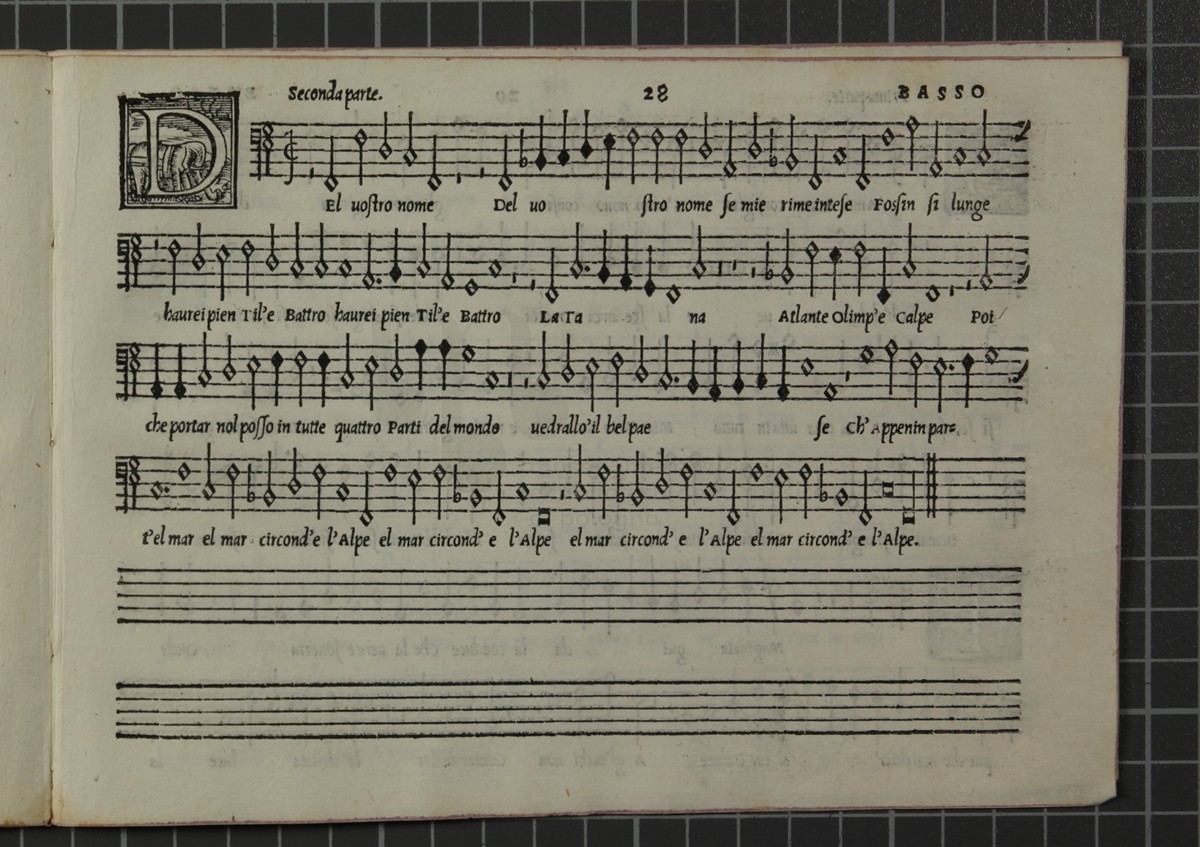 Seconda parte. 28 BASSO
DEl uoſtro nome Del uo ſtro nome ſe mie rime inteſe Foſsin ſi lunge
haurei pien Til'e Battro haurei pien Til'e Battro La Ta na Atlante Olimp'e Calpe Poi
che portar nol poſſo in tutte quattro Parti del mondo uedrallo'il bel pae ſe Ch'Appenin par=
t'el mar el mar circond'e l'Alpe el mar circond' e l'Alpe el mar circond' e l'Alpe el mar circond' e l'Alpe.